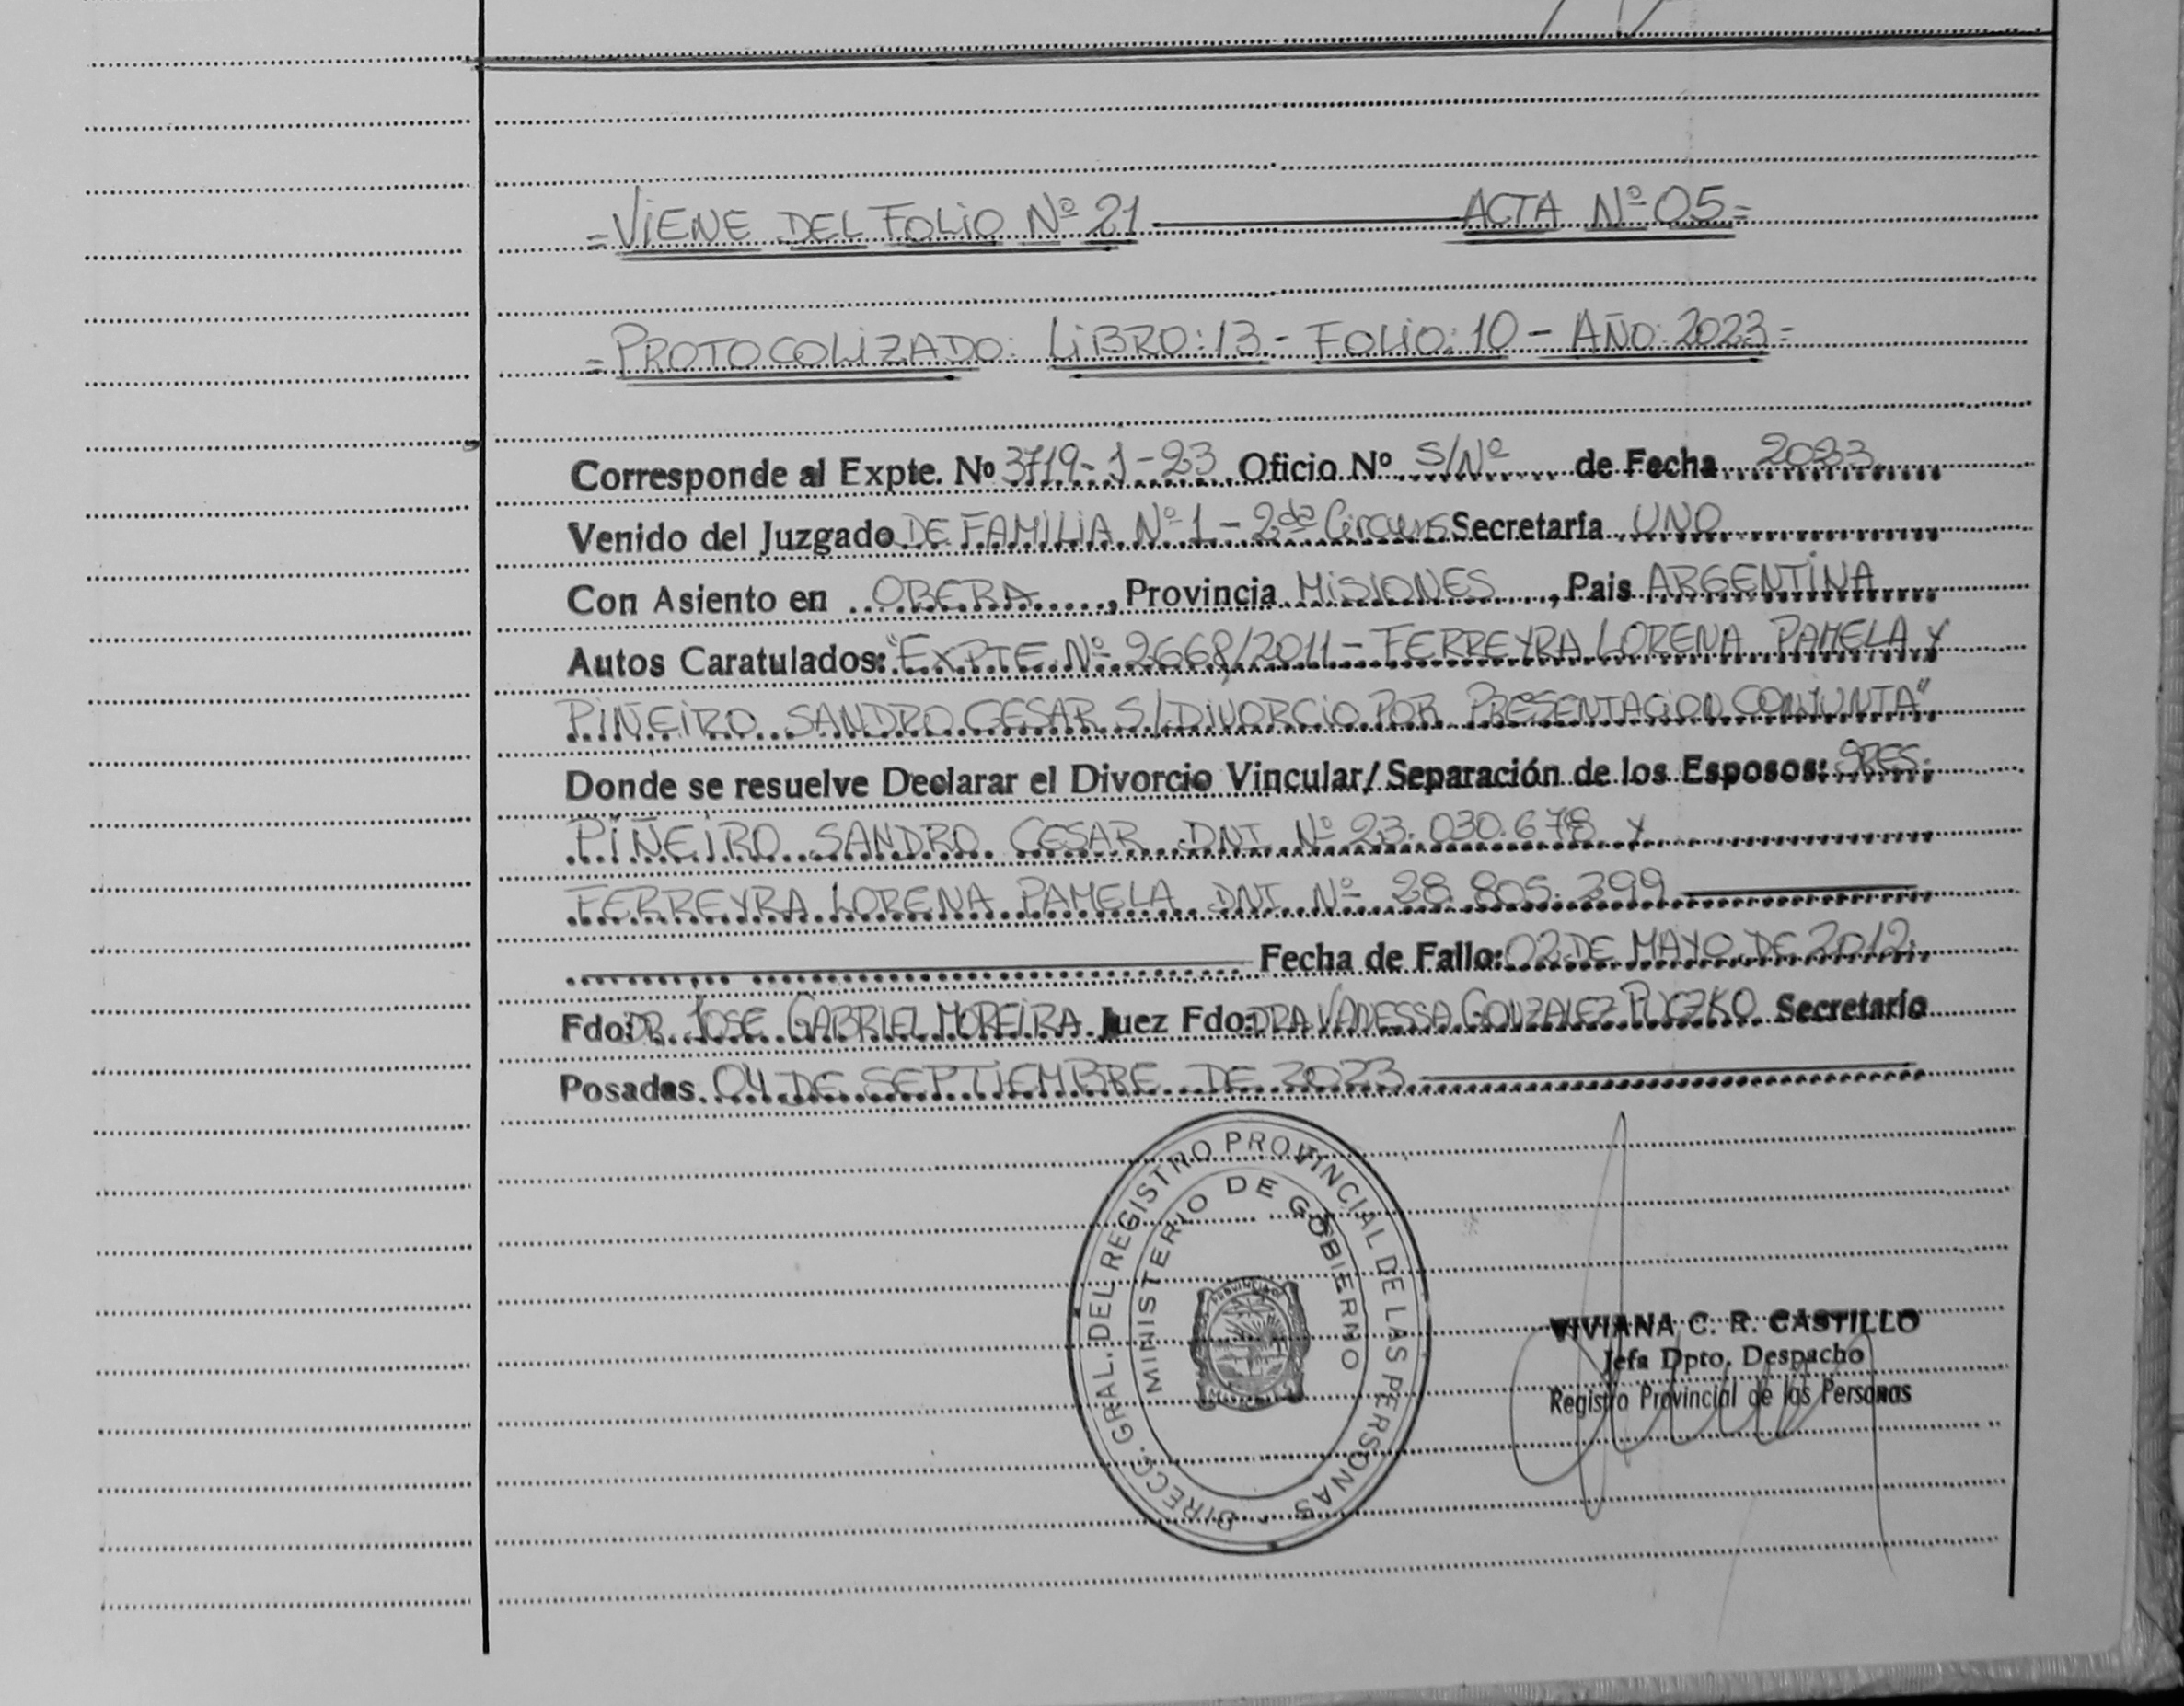 =VIENE DEL FOLIO Nº 21 ACTA Nº 05=
=PROTOCOLIZADO: LIBRO: 13 - FOLIO: 10 - AÑO: 2023=
Corresponde al Expte. Nº 3719-1-23 Oficio Nº S/Nº de Fecha 2023
Venido del Juzgado DE FAMILIA Nº 1 - 2da Circuns Secretaría UNO
Con Asiento en OBERA, Provincia MISIONES, Pais ARGENTINA
Autos Caratulados: "EXPTE Nº 2668/2011 - FERREYRA LORENA PAMELA Y
PIÑEIRO SANDRO CESAR S/ DIVORCIO POR PRESENTACION CONJUNTA"
Donde se resuelve Declarar el Divorcio Vincular/Separación de los Esposos: SRES.
PIÑEIRO SANDRO CESAR DNI Nº 23.030.678 Y
FERREYRA LORENA PAMELA DNI Nº 28.805.299
Fecha de Fallo: 02 DE MAYO DE 2012.
Fdo: DR. JOSE GABRIEL MOREIRA Juez Fdo: DRA VANESSA GONZALEZ Secretario
Posadas 04 DE SEPTIEMBRE DE 2023
DIRECC. GRAL. DEL REGISTRO PROVINCIAL DE LAS PERSONAS
MINISTERIO DE GOBIERNO
VIVIANA C. R. CASTILLO
Jefa Dpto. Despacho
Registro Provincial de las Personas